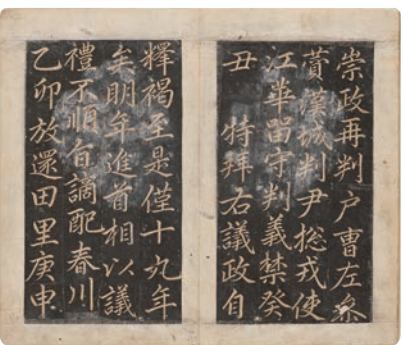 崇政再判户曹左参
贊漢城判尹揔戎使
江華留守判義禁癸
丑特拜右議政自
釋褐至是僅十九年
矣明年進首相以議
禮不順旨謫配春川
乙卯放還田里庚申